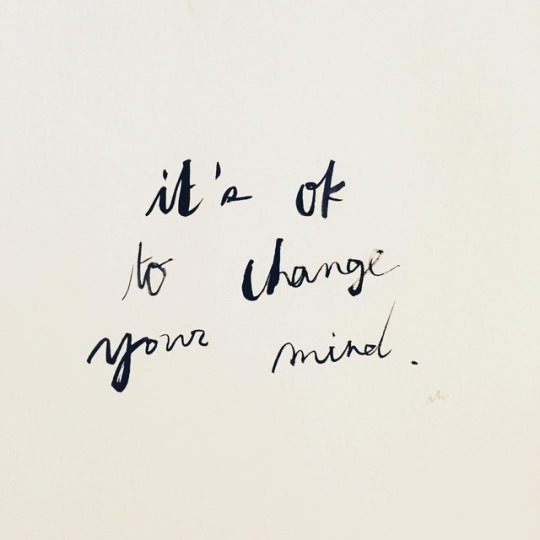 it's ok
to change
your mind.